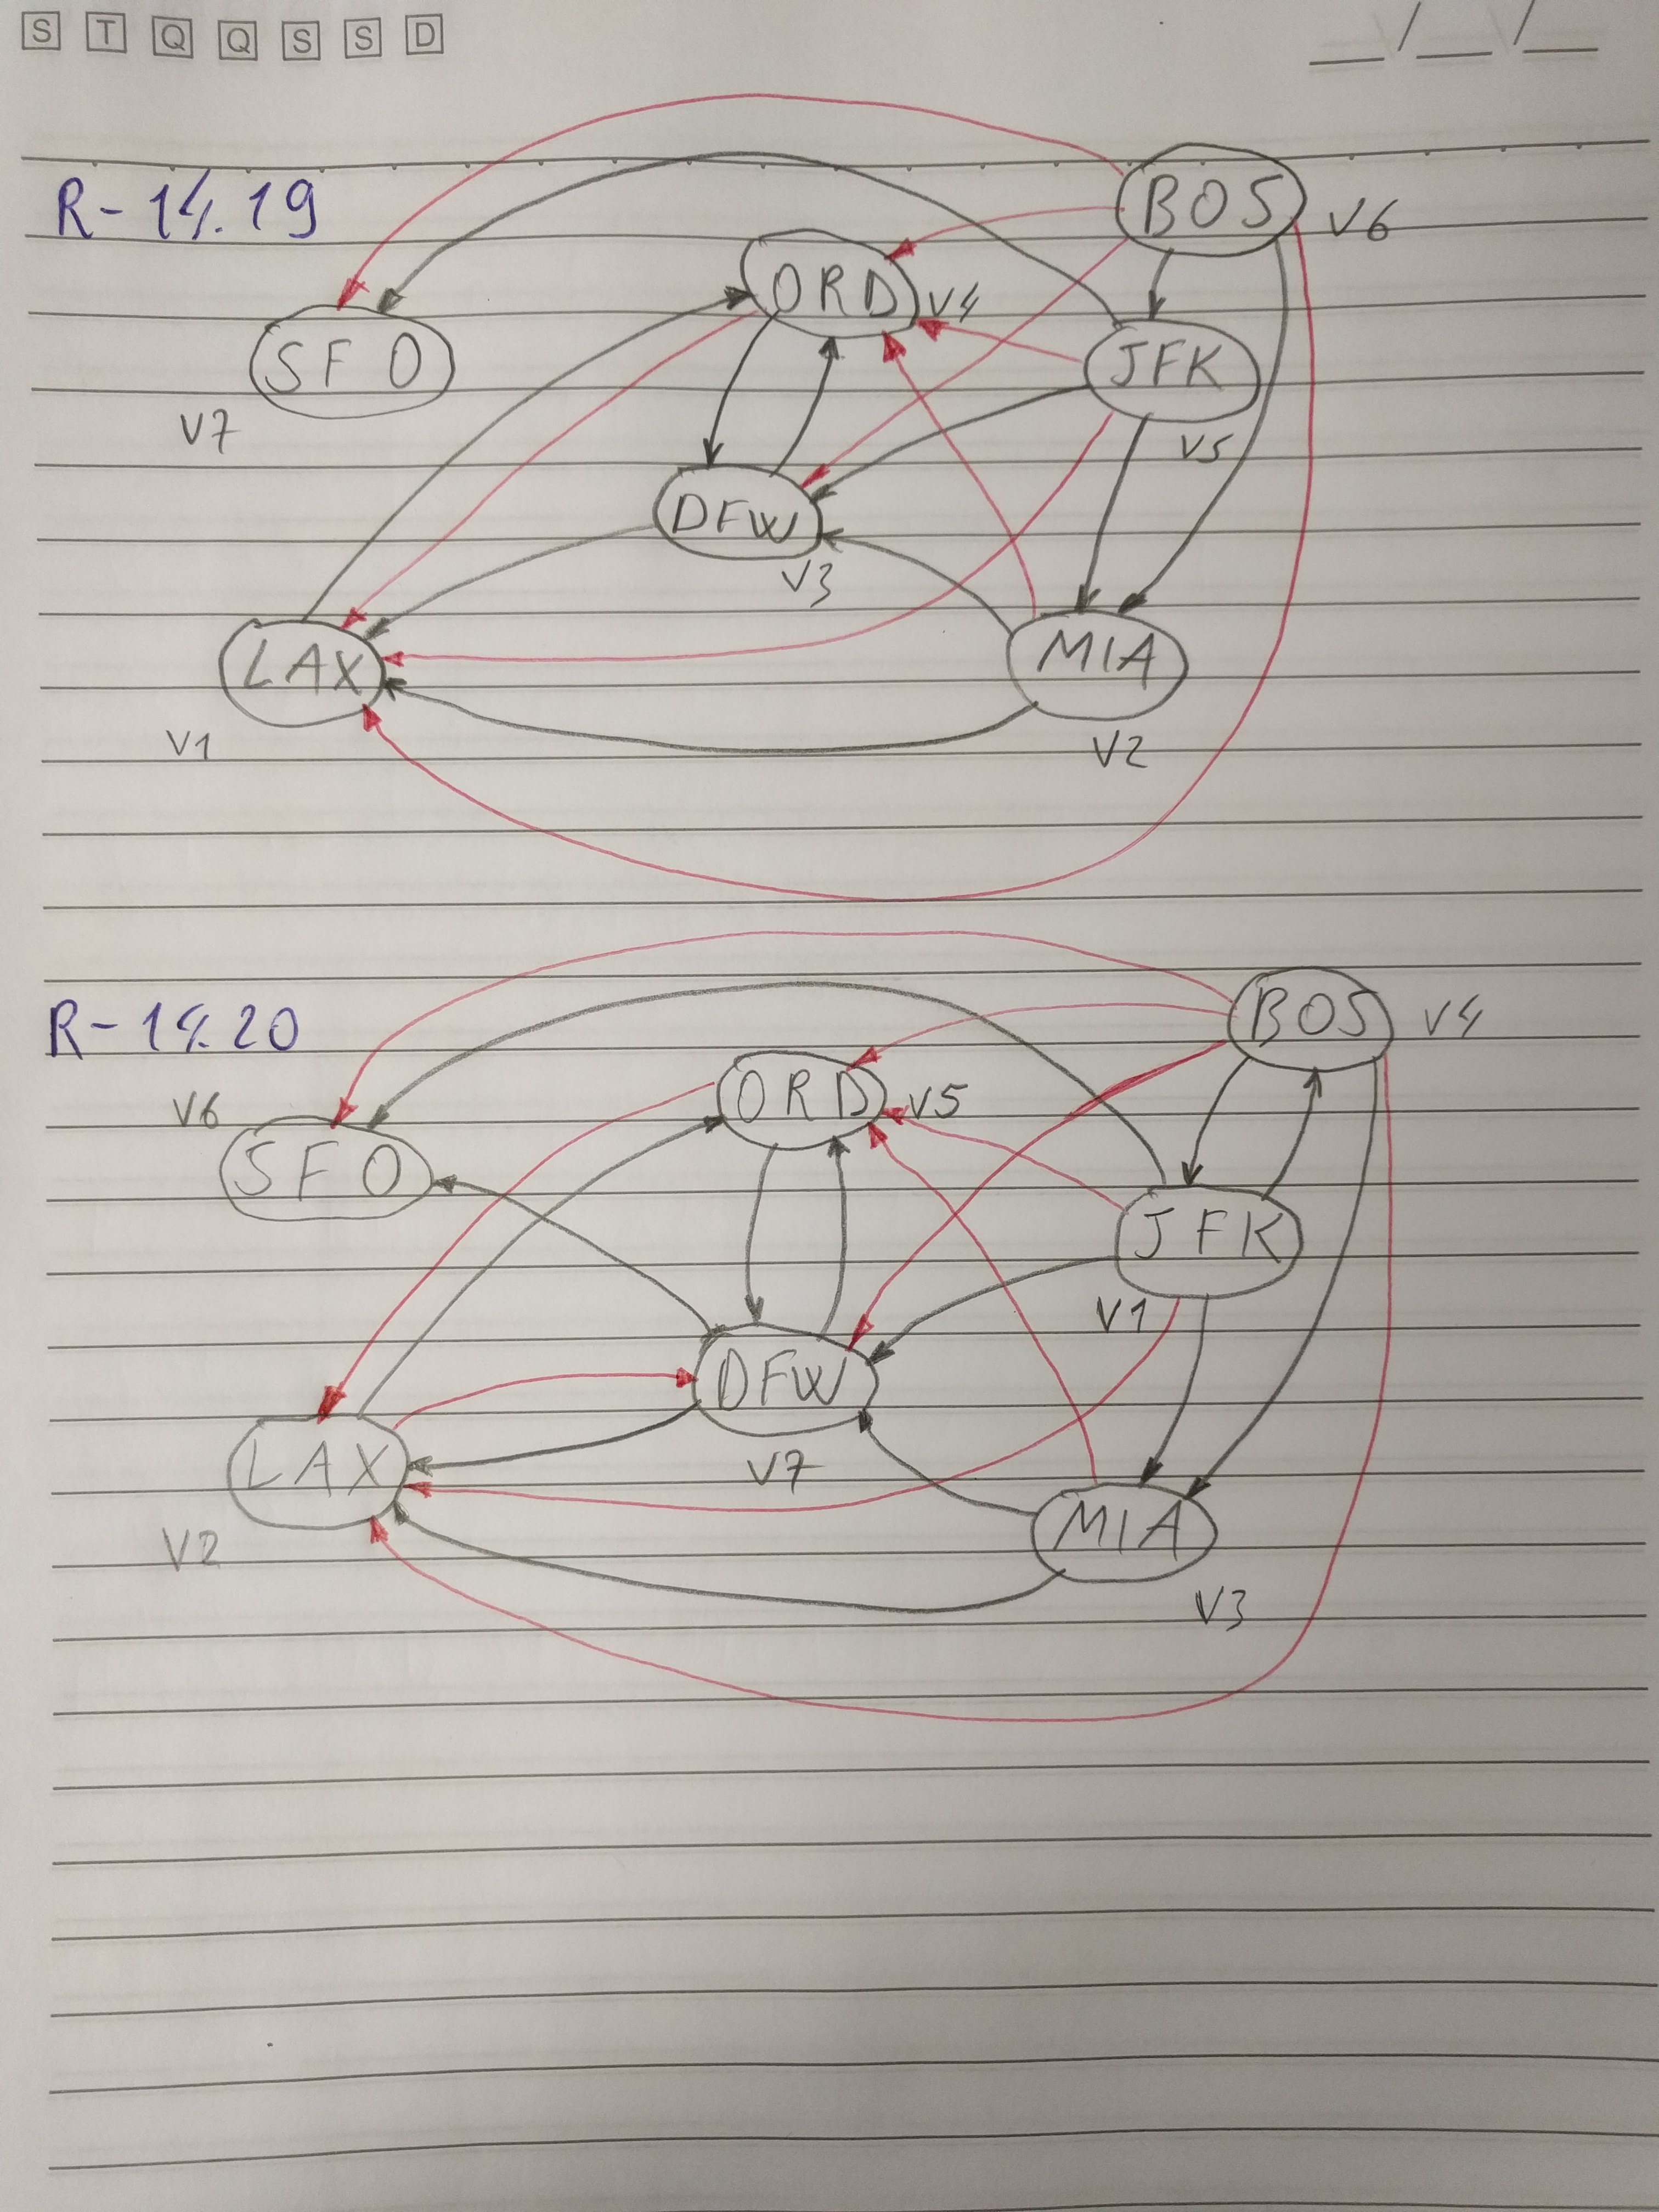 S T Q Q S S D
__/__/__
R-14.19
BOS V6
ORD V4
SFO
JFK
V7
V5
DFW
V3
LAX
MIA
V1
V2
R-14.20
BOS V4
V6
ORD V5
SFO
JFK
V1
DFW
LAX
V7
MIA
V2
V3